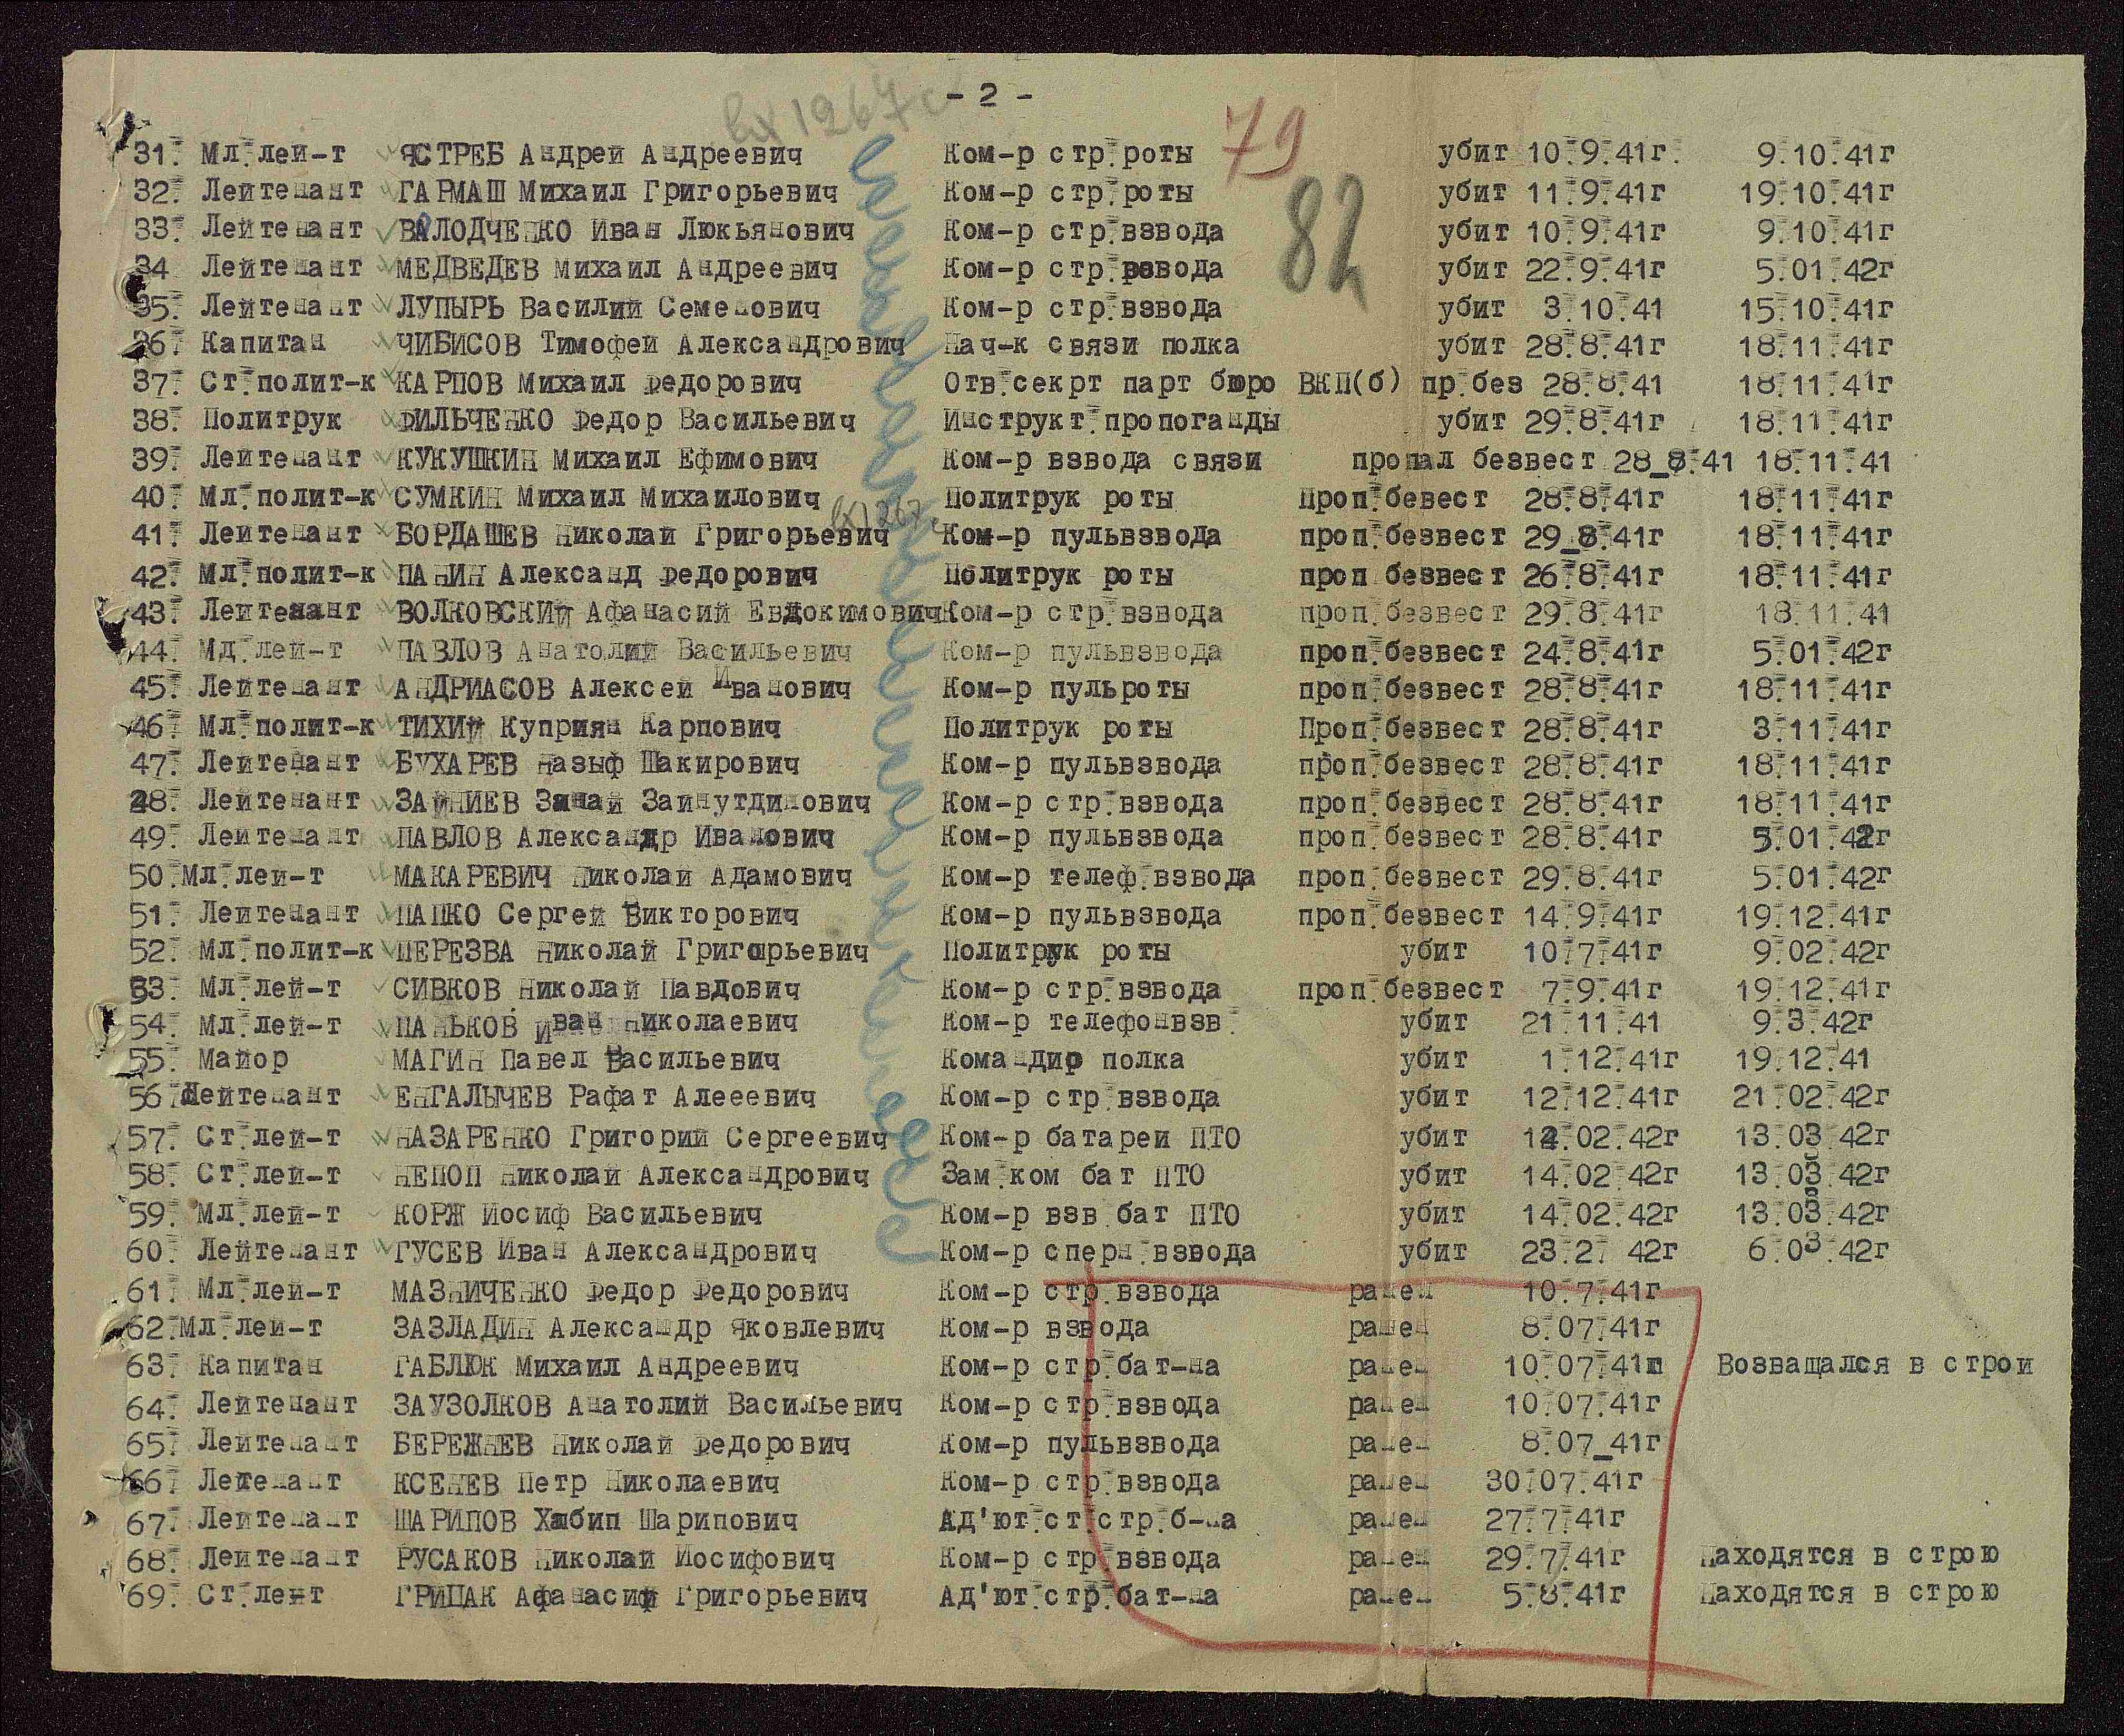 - 2 -
вх 1267с
79
82
31. Мл.лей-т ЯСТРЕБ Андрей Андреевич Ком-р стр.роты убит 10.9.41г. 9.10.41г
32. Лейтенант ГАРМАШ Михаил Григорьевич Ком-р стр.роты убит 11.9.41г 19.10.41г
33. Лейтенант ВОЛОДЧЕНКО Иван Люкьянович Ком-р стр.взвода убит 10.9.41г 9.10.41г
34 Лейтенант МЕДВЕДЕВ Михаил Андреевич Ком-р стр.взвода убит 22.9.41г 5.01.42г
35. Лейтенант ЛУПЫРЬ Василий Семенович Ком-р стр.взвода убит 3.10.41 15.10.41г
36. Капитан ЧИБИСОВ Тимофей Александрович Нач-к связи полка убит 28.8.41г 18.11.41г
37. Ст.полит-к КАРПОВ Михаил Федорович Отв.секрт парт бюро ВКП(б) пр.без 28.8.41 18.11.41г
38. Политрук ФИЛЬЧЕНКО Федор Васильевич Инструкт.пропоганды убит 29.8.41г 18.11.41г
39. Лейтенант КУКУШКИН Михаил Ефимович Ком-р взвода связи пропал безвест 28_8.41 18.11.41
40. Мл.полит-к СУМКИН Михаил Михаилович Политрук роты Проп.бевест 28.8.41г 18.11.41г
41. Лейтенант БОРДАШЕВ Николай Григорьевич Ком-р пульвзвода проп.безвест 29_8.41г 18.11.41г
42. Мл.полит-к ПАНИН Александ Федорович Политрук роты проп безвест 26.8.41г 18.11.41г
43. Лейтенант ВОЛКОВСКИЙ Афанасий Евдокимович Ком-р стр.взвода проп.безвест 29.8.41г 18.11.41
44. Мл.лей-т ПАВЛОВ Анатолий Васильевич Ком-р пульвзвода проп.безвест 24.8.41г 5.01.42г
45. Лейтенант АНДРИАСОВ Алексей Иванович Ком-р пульроты проп.безвест 28.8.41г 18.11.41г
46. Мл.полит-к ТИХИЙ Куприян Карпович Политрук роты Проп.безвест 28.8.41г 3.11.41г
47. Лейтенант БУХАРЕВ Назыф Шакирович Ком-р пульвзвода проп.безвест 28.8.41г 18.11.41г
48. Лейтенант ЗАЙНИЕВ Занай Зайнутдинович Ком-р стр.взвода проп.безвест 28.8.41г 18.11.41г
49. Лейтенант ПАВЛОВ Александр Иванович Ком-р пульвзвода проп.безвест 28.8.41г 5.01.42г
50.Мл.лей-т МАКАРЕВИЧ Николай Адамович Ком-р телеф.взвода проп.безвест 29.8.41г 5.01.42г
51. Лейтенант ПАПКО Сергей Викторович Ком-р пульвзвода проп.безвест 14.9.41г 19.12.41г
52. Мл.полит-к ПЕРЕЗВА Николай Григорьевич Политрук роты убит 10.7.41г 9.02.42г
53. Мл.лей-т СИВКОВ Николай Павлович Ком-р стр.взвода проп.безвест 7.9.41г 19.12.41г
54. Мл.лей-т ПАНЬКОВ Иван Николаевич Ком-р телефонвзв. убит 21.11.41 9.3.42г
55. Майор МАГИН Павел Васильевич Командир полка убит 1.12.41г 19.12.41
56.Лейтенант ЕНГАЛЫЧЕВ Рафат Алееевич Ком-р стр.взвода убит 12.12.41г 21.02.42г
57. Ст.лей-т НАЗАРЕНКО Григорий Сергеевич Ком-р батареи ПТО убит 14.02.42г 13.03.42г
58. Ст.лей-т НЕПОП Николай Александрович Зам.ком бат ПТО убит 14.02.42г 13.03.42г
59. Мл.лей-т КОРЖ Иосиф Васильевич Ком-р взв.бат ПТО убит 14.02.42г 13.03.42г
60. Лейтенант ГУСЕВ Иван Александрович Ком-р сперн.взвода убит 23.2. 42г 6.03.42г
61. Мл.лей-т МАЗНИЧЕНКО Федор Федорович Ком-р стр.взвода ранен 10.7.41г
62.Мл.лей-т ЗАЗЛАДИН Александр Яковлевич Ком-р взвода ранен 8.07.41г
63. Капитан ГАБЛЮК Михаил Андреевич Ком-р стр.бат-на ранен 10.07.41г Возващался в строи
64. Лейтенант ЗАУЗОЛКОВ Анатолий Васильевич Ком-р стр.взвода ранен 10.07.41г
65. Лейтенант БЕРЕЖНЕВ Николай Федорович Ком-р пульвзвода ранен 8.07_41г
66. Лейтенант КСЕНЕВ Петр Николаевич Ком-р стр.взвода ранен 30.07.41г
67. Лейтенант ШАРИПОВ Хабип Шарипович Ад'ют.ст.стр.б-на ранен 27.7.41г
68. Лейтенант РУСАКОВ Николай Иосифович Ком-р стр.взвода ранен 29.7.41г Находятся в строю
69. Ст.лент ГРИЦАК Афанасий Григорьевич Ад'ют.стр.бат-на ранен 5.8.41г Находятся в строю